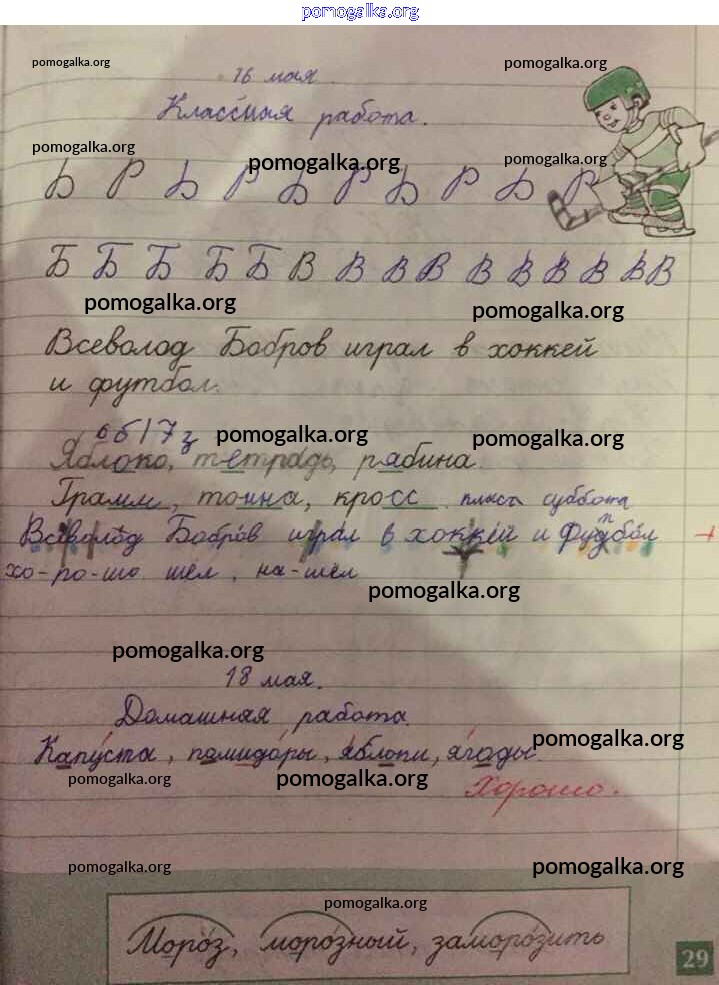 pomogalka.org
pomogalka.org pomogalka.org
16 мая.
Классная работа.
pomogalka.org pomogalka.org pomogalka.org
Б Р Б Р Б Р Б Р Б Р
Б Б Б Б Б В В В В В В В В В В
pomogalka.org pomogalka.org
Всеволод Бобров играл в хоккей
и футбол.
pomogalka.org pomogalka.org
Яблоко, тетрадь, рябина.
Грамм, тонна, кросс суббота
Всеволод Бобров играл в хоккей и Фудбол
т
хо-ро-шо шёл, на-шёл
pomogalka.org
pomogalka.org
18 мая.
Домашняя работа.
pomogalka.org
Капуста, памидоры, яблоки, ягоды.
pomogalka.org pomogalka.org
Хорошо.
pomogalka.org pomogalka.org
pomogalka.org
Мороз, морозный, заморозить
29